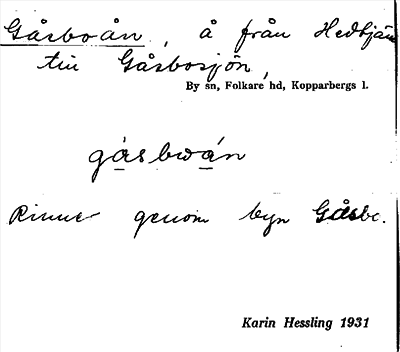 Gåsboån, å från Hedtjärn
till Gåsbosjön,
By sn, Folkare hd, Kopparbergs l.
gåsbωån
Rinner genom byn Gåsbo.
Karin Hessling 1931